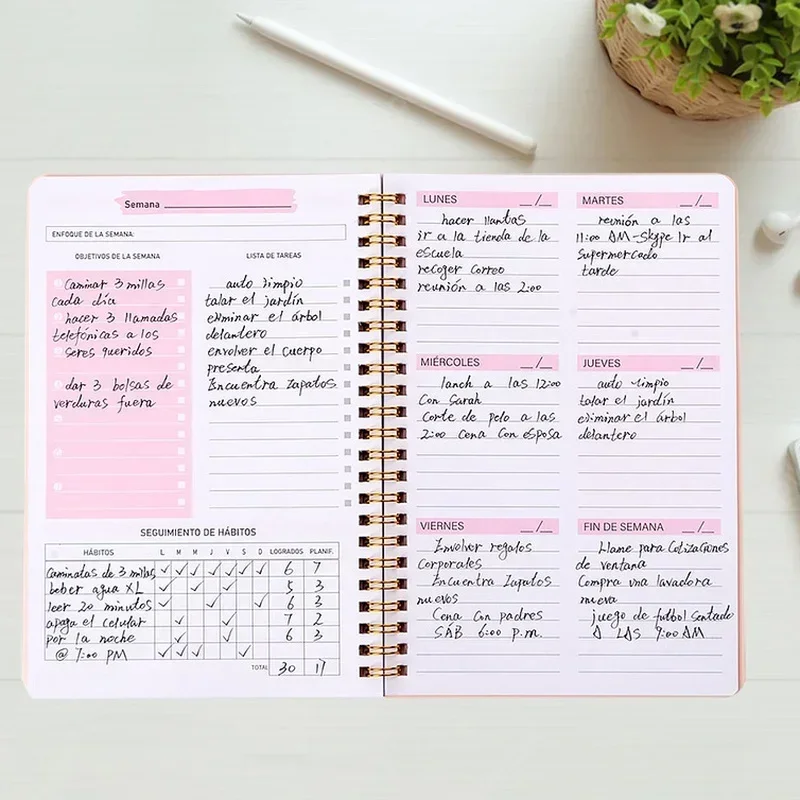 Semana
ENFOQUE DE LA SEMANA:
OBJETIVOS DE LA SEMANA
Caminar 3 millas
cada día
hacer 3 llamadas
telefónicas a los
seres queridos
dar 3 bolsas de
verduras fuera
LISTA DE TAREAS
auto limpio
talar el jardín
eliminar el árbol
delantero
envolver el cuerpo
presenta
Encuentra zapatos
nuevos
SEGUIMIENTO DE HÁBITOS
HÁBITOS L M M J V S D LOGRADOS PLANIF.
Caminatas de 3 millas ✓ ✓ ✓ ✓ ✓ ✓ ✓ 6 7
beber agua XL ✓ ✓ ✓ 5 3
leer 20 minutos ✓ ✓ ✓ 6 3
apaga el celular ✓ ✓ 7 2
por la noche ✓ ✓ 6 3
@ 7:00 PM ✓ ✓ ✓ ✓
TOTAL 30 17
LUNES _/_
hacer llantas
ir a la tienda de la
escuela
recoger correo
reunión a las 2:00
MARTES _/_
reunión a las
11:00 AM-Skype Ir al
supermercado
tarde
MIÉRCOLES _/_
lanch a las 12:00
Con Sarah
Corte de pelo a las
2:00 Cena Con esposa
JUEVES _/_
auto limpio
talar el jardín
eliminar el árbol
delantero
VIERNES _/_
Envolver regalos
Corporales
Encuentra Zapatos
nuevos
Cena Con padres
SÁB 6:00 p.m.
FIN DE SEMANA _/_
Llame para Cotizaciones
de ventana
Compra una lavadora
nueva
juego de futbol Sentado
A LAS 9:00 AM